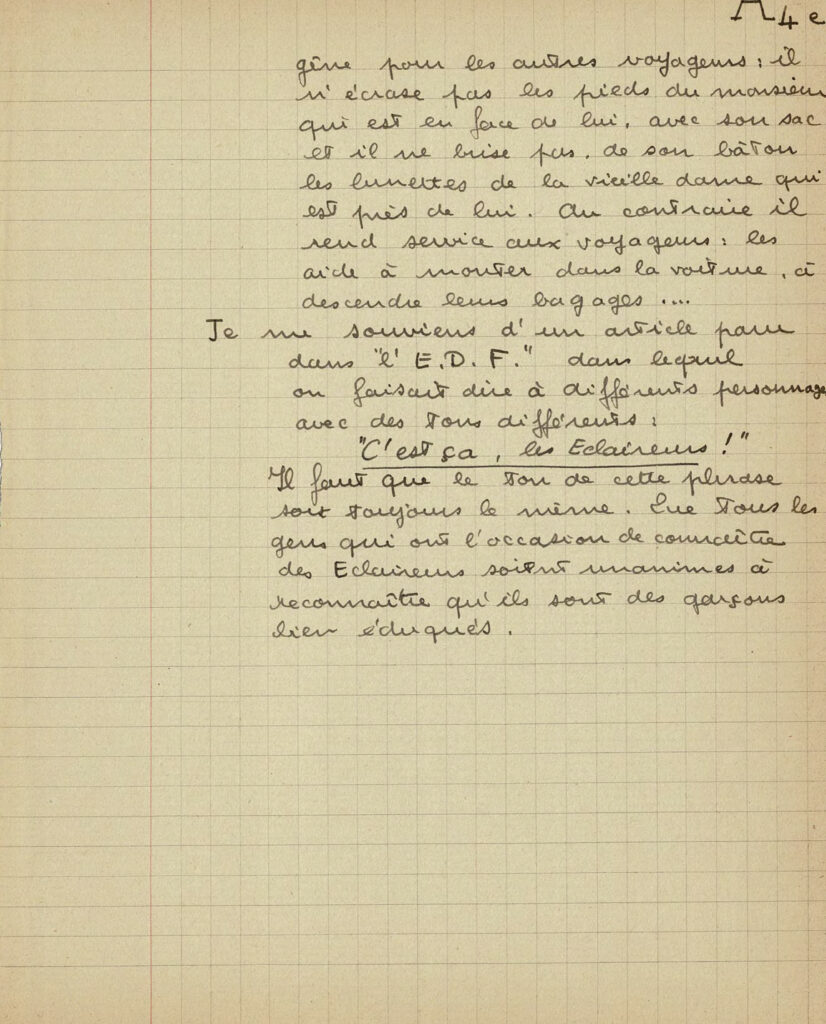 A4e
gêne pour les autres voyageurs : il
n'écrase pas les pieds du monsieur
qui est en face de lui, avec son sac
et il ne brise pas, de son bâton
les lunettes de la vieille dame qui
est près de lui. Au contraire il
rend service aux voyageurs : les
aide à monter dans la voiture, à
descendre leurs bagages ....
Je me souviens d'un article paru
dans "l' E.D.F." dans lequel
on faisait dire à différents personnage
avec des tons différents :
"C'est ça, les Eclaireurs !"
Il faut que le ton de cette phrase
soit toujours le même. Que tous les
gens qui ont l'occasion de connaître
des Eclaireurs soient unanimes à
reconnaître qu'ils sont des garçons
bien éduqués.